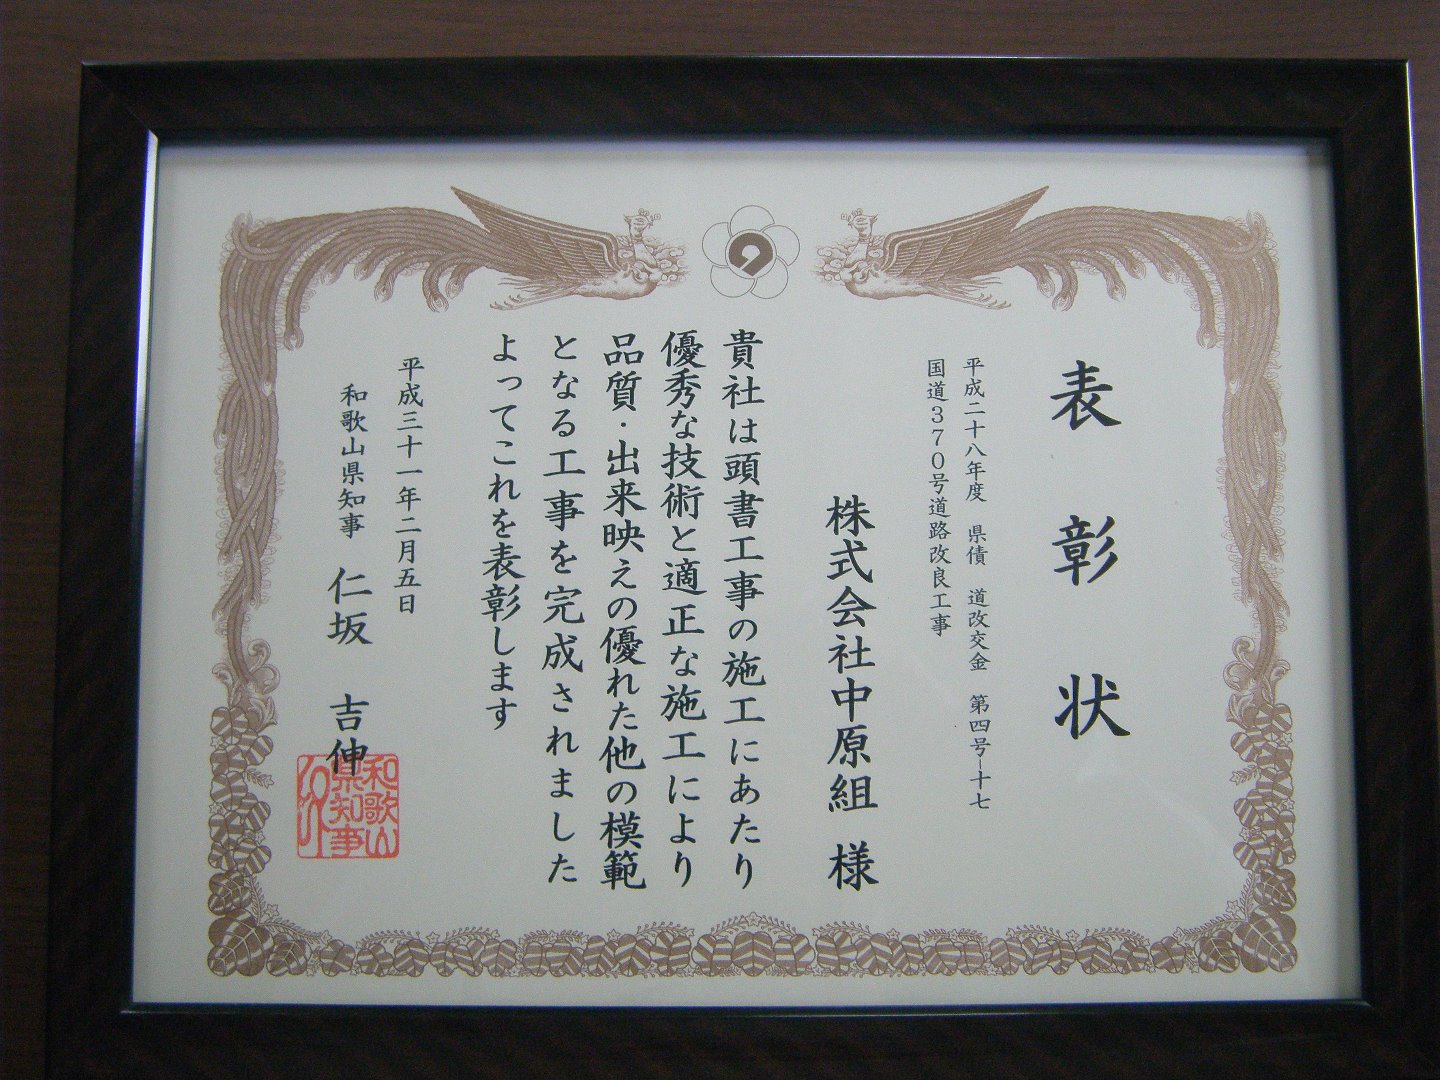 表彰状
平成二十八年度　県債　道改交金　第四号－十七
国道３７０号道路改良工事
株式会社中原組　様
貴社は頭書工事の施工にあたり
優秀な技術と適正な施工により
品質・出来映えの優れた他の模範
となる工事を完成されました
よってこれを表彰します
平成三十一年二月五日
和歌山県知事　仁坂　吉伸
和歌山
県知事